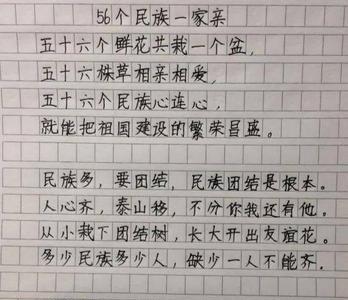 56个民族一家亲
五十六个鲜花共栽一个盆,
五十六株草相亲相爱,
五十六个民族心连心,
就能把祖国建设的繁荣昌盛。
民族多,要团结,民族团结是根本。
人心齐,泰山移,不分你我还有他。
从小栽下团结树,长大开出友谊花。
多少民族多少人,缺少一人不能齐。